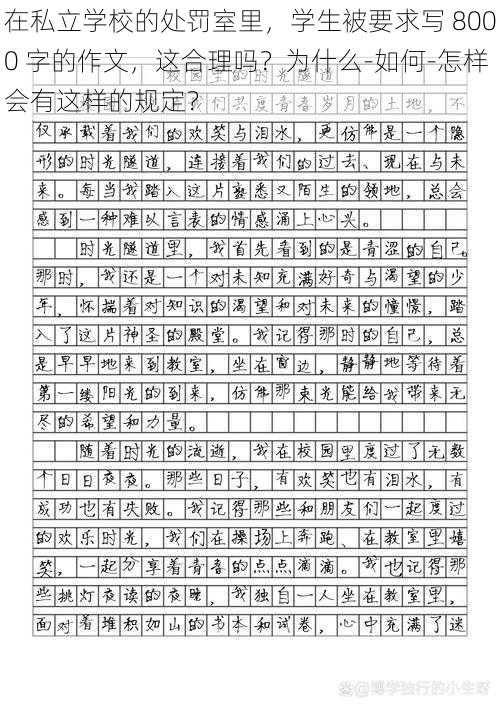 在私立学校的处罚室里，学生被要求写 800
0 字的作文，这合理吗？为什么-如何-怎样
会有这样的规定？
校园里的时光隧道
我们共度青春岁月的土地，不
仅承载着我们的欢笑与泪水，更仿佛是一个隐
形的时光隧道，连接着我们的过去、现在与未
来。每当我踏入这片熟悉又陌生的领地，总会
感到一种难以言表的情感涌上心头。
时光隧道里，我首先看到的是青涩的自己。
那时，我还是一个对未知充满好奇与渴望的少
年，怀揣着对知识的渴望和对未来的憧憬，踏
入了这片神圣的殿堂。我记得那时的自己，总
是早早地来到教室，坐在窗边，静静地等待着
第一缕阳光的到来，仿佛那束光能给我带来无
尽的希望和力量。
随着时光的流逝，我在校园里度过了无数
个日日夜夜。那些日子，有欢笑也有泪水，有
成功也有失败。我记得那些和朋友们一起度过
的欢乐时光，我们在操场上奔跑、在教室里嬉
笑，一起分享着青春的点点滴滴。我也记得那
些挑灯夜读的夜晚，我独自一人坐在教室里，
面对着堆积如山的书本和试卷，心中充满了迷
知乎 @博学独行的小生呀